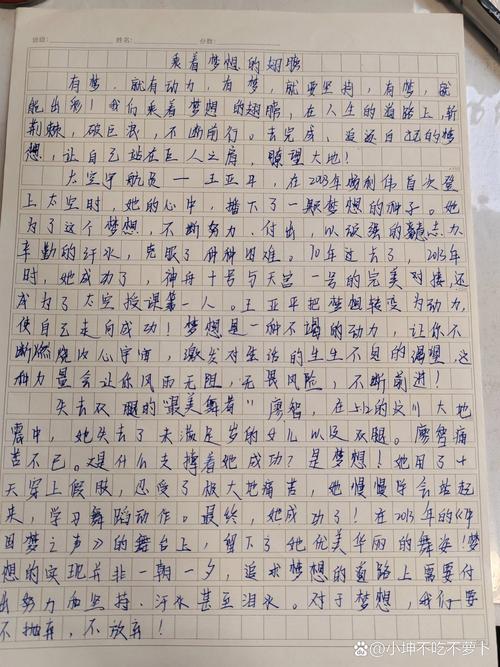 班级: 姓名: 分数:
乘着梦想的翅膀
有梦，就有动力，有梦，就要坚持，有梦，就
能出彩！我们乘着梦想的翅膀，在人生的道路上，斩
荆棘，破巨浪，不断前行。去完成、追逐自己的梦
想，让自己站在巨人之肩，瞭望大地！
太空宇航员——王亚平，在2003年杨利伟首次登
上太空时，她的心中，播下了一颗梦想的种子。她
为了这个梦想，不断努力，付出，以顽强的意志力
辛勤的汗水，克服了种种困难。10年过去了，2013年
时，她成功了，神舟十号与天宫一号的完美对接，还
成为了太空授课第一人。王亚平把梦想转变为动力，
使自己走向成功！梦想是一种不竭的动力，让你不
断燃烧内心宇宙，激发对生活的生生不息的渴望，这
种力量会让你风雨无阻，无畏风险，不断前进！
失去双腿的“最美舞者”廖智，在5.12的汶川大地
震中，她失去了未满足岁的女儿以及双腿。廖智痛
苦不已。是什么支撑着她成功？是梦想！她用了十
天穿上假肢，忍受了极大地痛苦，她慢慢学会站起
来，学习舞蹈动作。最终，她成功了！在2013年的《中
国梦之声》的舞台上，留下了她优美华丽的舞姿！梦
想的实现并非一朝一夕，追求梦想的道路上需要付
出努力和坚持、汗水甚至泪水。对于梦想，我们要
不抛弃，不放弃！
@小坤不吃不萝卜